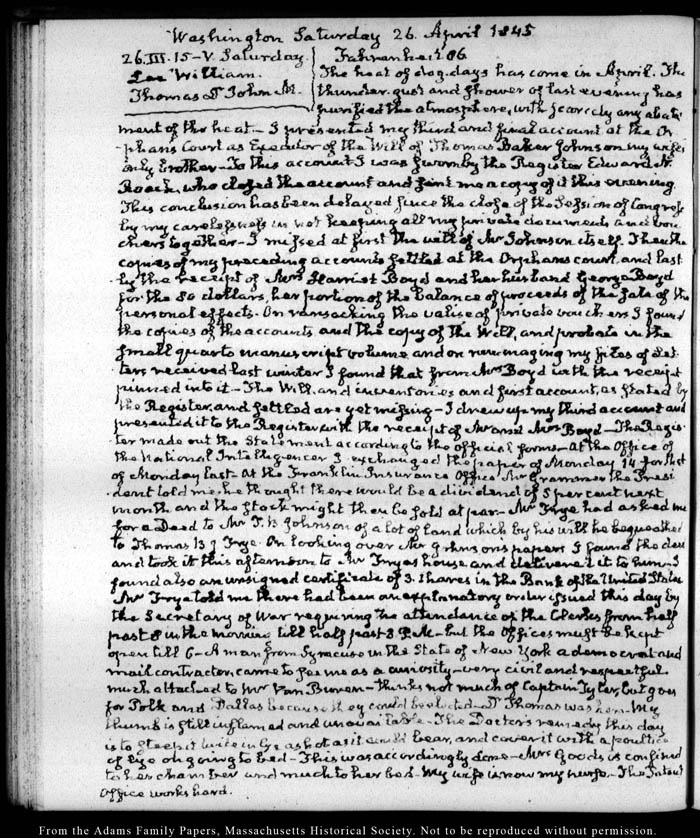 Washington Saturday 26. April 1845
26. III. 15 - V. Saturday. Fahrenheit 86
Lee William. The heat of dog-days has come in April. The
Thomas Dr John M. thunder gust and shower of last evening has
purified the atmosphere, with scarcely any abate
ment of the heat - I presented my third and final account at the Or
phans Court as Executor of the Will of Thomas Baker Johnson my wife's
only brother - To this account I was sworn by the Register Edward N.
Roach, who closed the account and sent me a copy of it this evening.
This conclusion has been delayed since the close of the Session of Congress
by my carelessness in not keeping all my private documents and vou
chers together - I missed at first the will of Mr Johnson itself. Then the
copies of my preceding accounts settled at the Orphans court, and last
by the receipt of Mrs Harriet Boyd and her husband George Boyd
for the 80 dollars, her portion of the balance of proceeds of the sale of the
personal effects. On ransacking the valise of private vouchers I found
the copies of the accounts and the copy of the Will, and probate in the
small quarto manuscript volume and on rummaging my files of let
ters received last winter I found that from Mrs Boyd with the receipt
pinned into it - The Will, and inventories and first account, as stated by
the Register, and settled are yet missing - I drew up my third account and
presented it to the Register with the receipt of Mr and Mrs Boyd - The Regis
ter made out the Statement according to the official forms - At the Office of
the National Intelligencer I exchanged the paper of Monday 14 for that
of Monday last. At the Franklin Insurance Office Mr Grammer the Presi
dent told me he thought there would be a dividend of 5 per cent next
month and the stock might then be sold at par - Mr Frye had asked me
for a Deed to Mr T. B Johnson of a lot of land which by his will he bequeathed
to Thomas B J Frye. On looking over Mr Johnson's papers I found the deed
and took it this afternoon to Mr Frye's house, and delivered it to him - I
found also an unsigned certificate of 3 shares in the Bank of the United States
Mr Frye told me there had been an explanatory order issued this day by
the Secretary of War requiring the attendance of the Clerks from half
past 8 in the morning till half past 3 P.M. - but the Offices must be kept
open till 6 - A man from Syracuse in the State of New York a democrat and
mail contractor, came to see me as a curiosity - very civil and respectful
much attached to Mr Van Buren - thinks not much of Captain Tyler, but goes
for Polk and Dallas because they could be elected - Dr Thomas was here - My
thumb is still inflamed and unavailable - The Doctor's remedy this day
is to steep it twice in lye as hot as it will bear, and cover it with a poultice
of lye on going to bed - This was accordingly done - Mrs Goods is confined
to her chamber and much to her bed - My wife is now my nurse - The Patent
Office works hard.
From the Adams Family Papers, Massachusetts Historical Society. Not to be reproduced without permission.